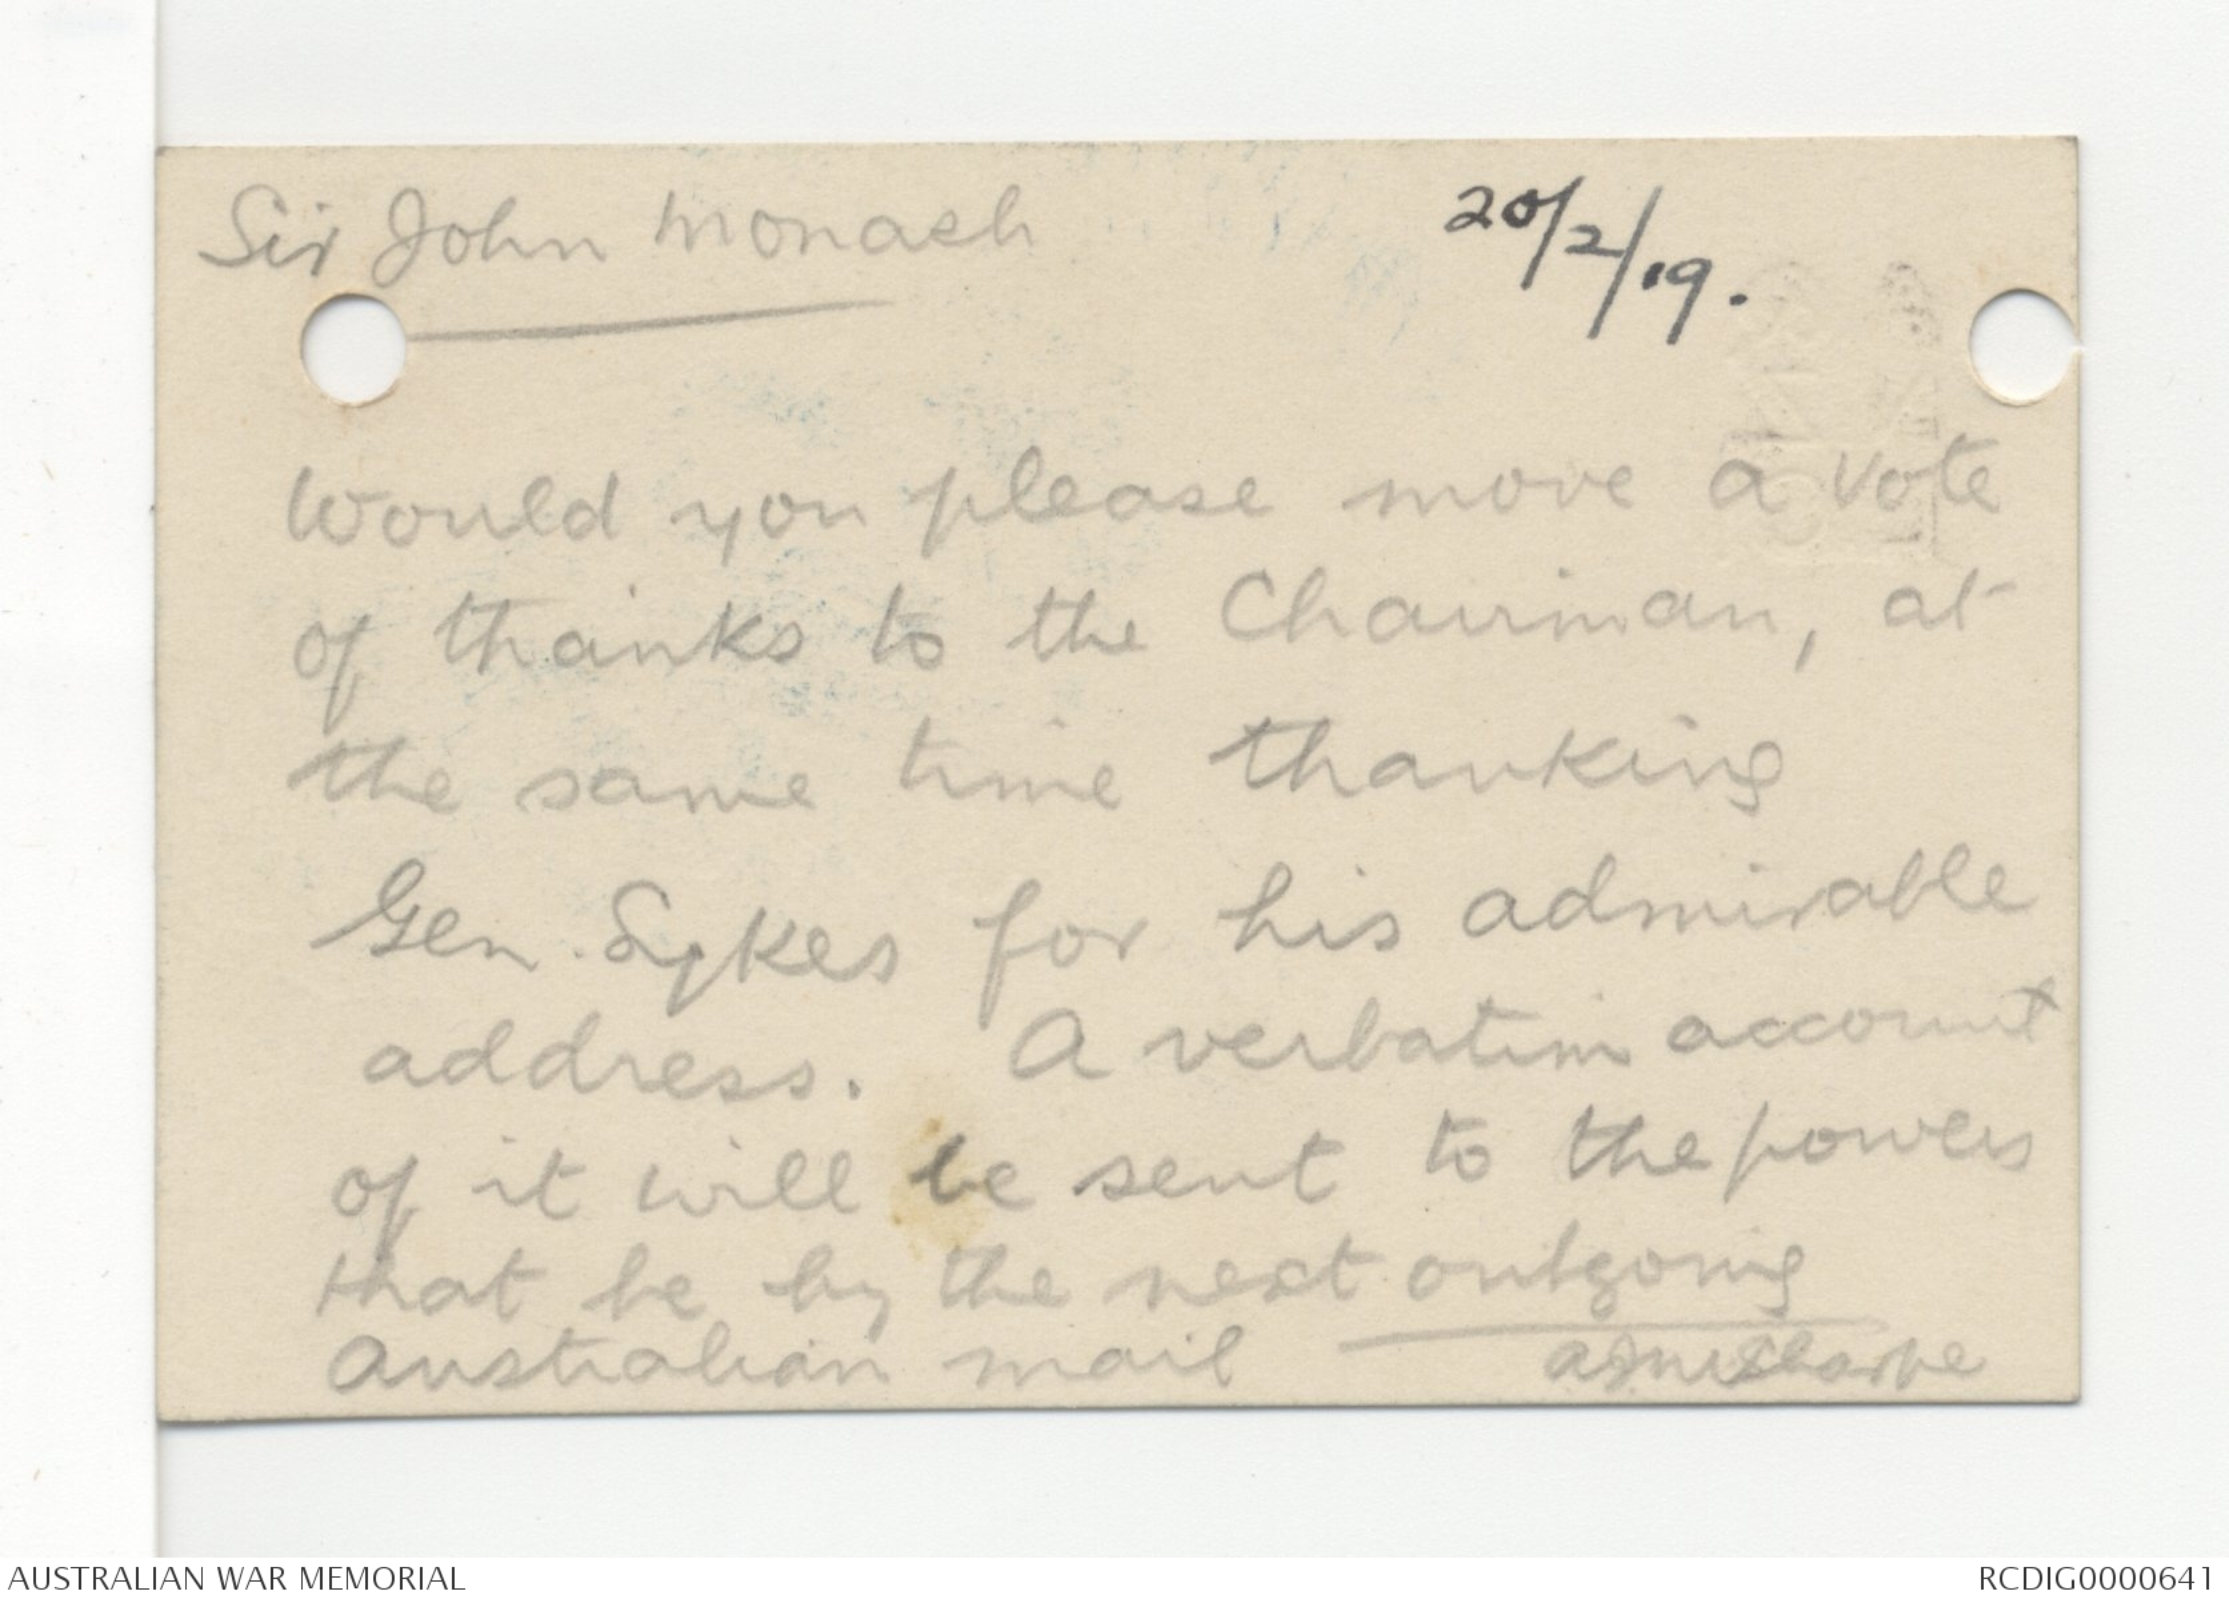 Sir John Monash
20/2/19.
Would you please move a vote
of thanks to the Chairman, at
the same time thanking
Gen. Sykes for his admirable
address. A verbatim account
of it will be sent to the powers
that be by the next outgoing
Australian mail
AUSTRALIAN WAR MEMORIAL
RCDIG0000641